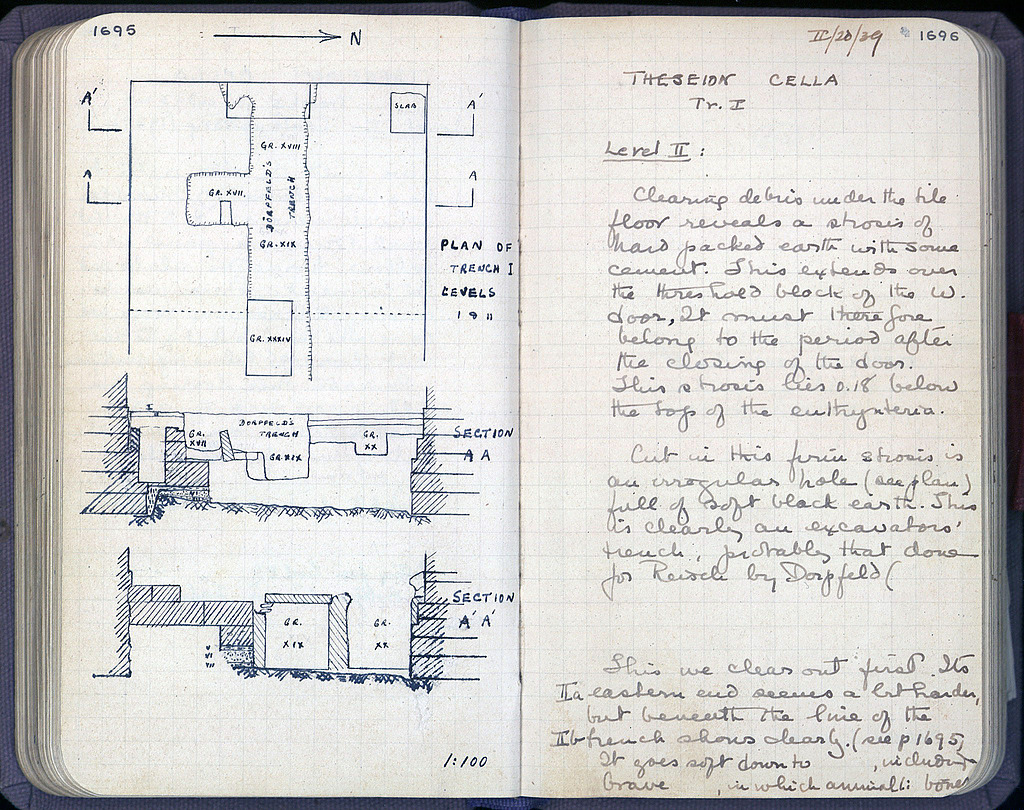 1695
N
A'
A'
SLAB
GR. XVIII
A
A
GR. XVII
DÖRPFELD'S
TRENCH
GR. XIX
PLAN OF
TRENCH I
LEVELS
I & II
GR. XXXIV
I
DÖRPFELD'S
TRENCH
GR.
XVII
GR. XIX
GR.
XX
SECTION
A A
SECTION
A' A'
GR.
XIX
GR.
XX
V
VI
VII
1:100
II/20/39
1696
THESEION CELLA
Tr. I
Level II :
Clearing debris under the tile
floor reveals a strosis of
hard packed earth with some
cement. This extends over
the threshold block of the W.
door, It must therefore
belong to the period after
the closing of the door.
This strosis lies 0.18 below
the top of the euthynteria.
Cut in this firm strosis is
an irregular hole (see plan)
full of soft black earth. This
is clearly an excavators'
trench, probably that done
for Reisch by Dörpfeld (
This we clear out first. Its
IIa eastern end seems a bit harder,
but beneath the line of the
IIb trench shows clearly. (see p 1695)
It goes soft down to , including
Grave , in which animal: bones